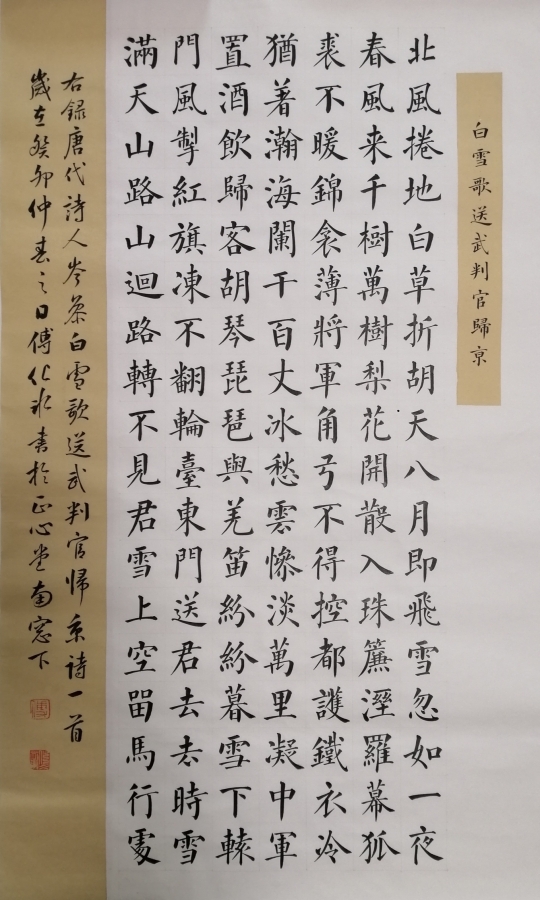 白雪歌送武判官歸京
北風捲地白草折胡天八月即飛雪忽如一夜
春風来千樹萬樹梨花開散入珠簾溼羅幕狐
裘不暖錦衾薄將軍角弓不得控都護鐵衣冷
猶著瀚海闌干百丈冰愁雲慘淡萬里凝中軍
置酒飲歸客胡琴琵琶與羌笛紛紛暮雪下轅
門風掣紅旗凍不翻輪臺東門送君去去時雪
滿天山路山迴路轉不見君雪上空留馬行處
右錄唐代詩人岑參白雪歌送武判官帰京詩一首
歲在癸卯仲春之日傅化冰書於正心堂南窓下